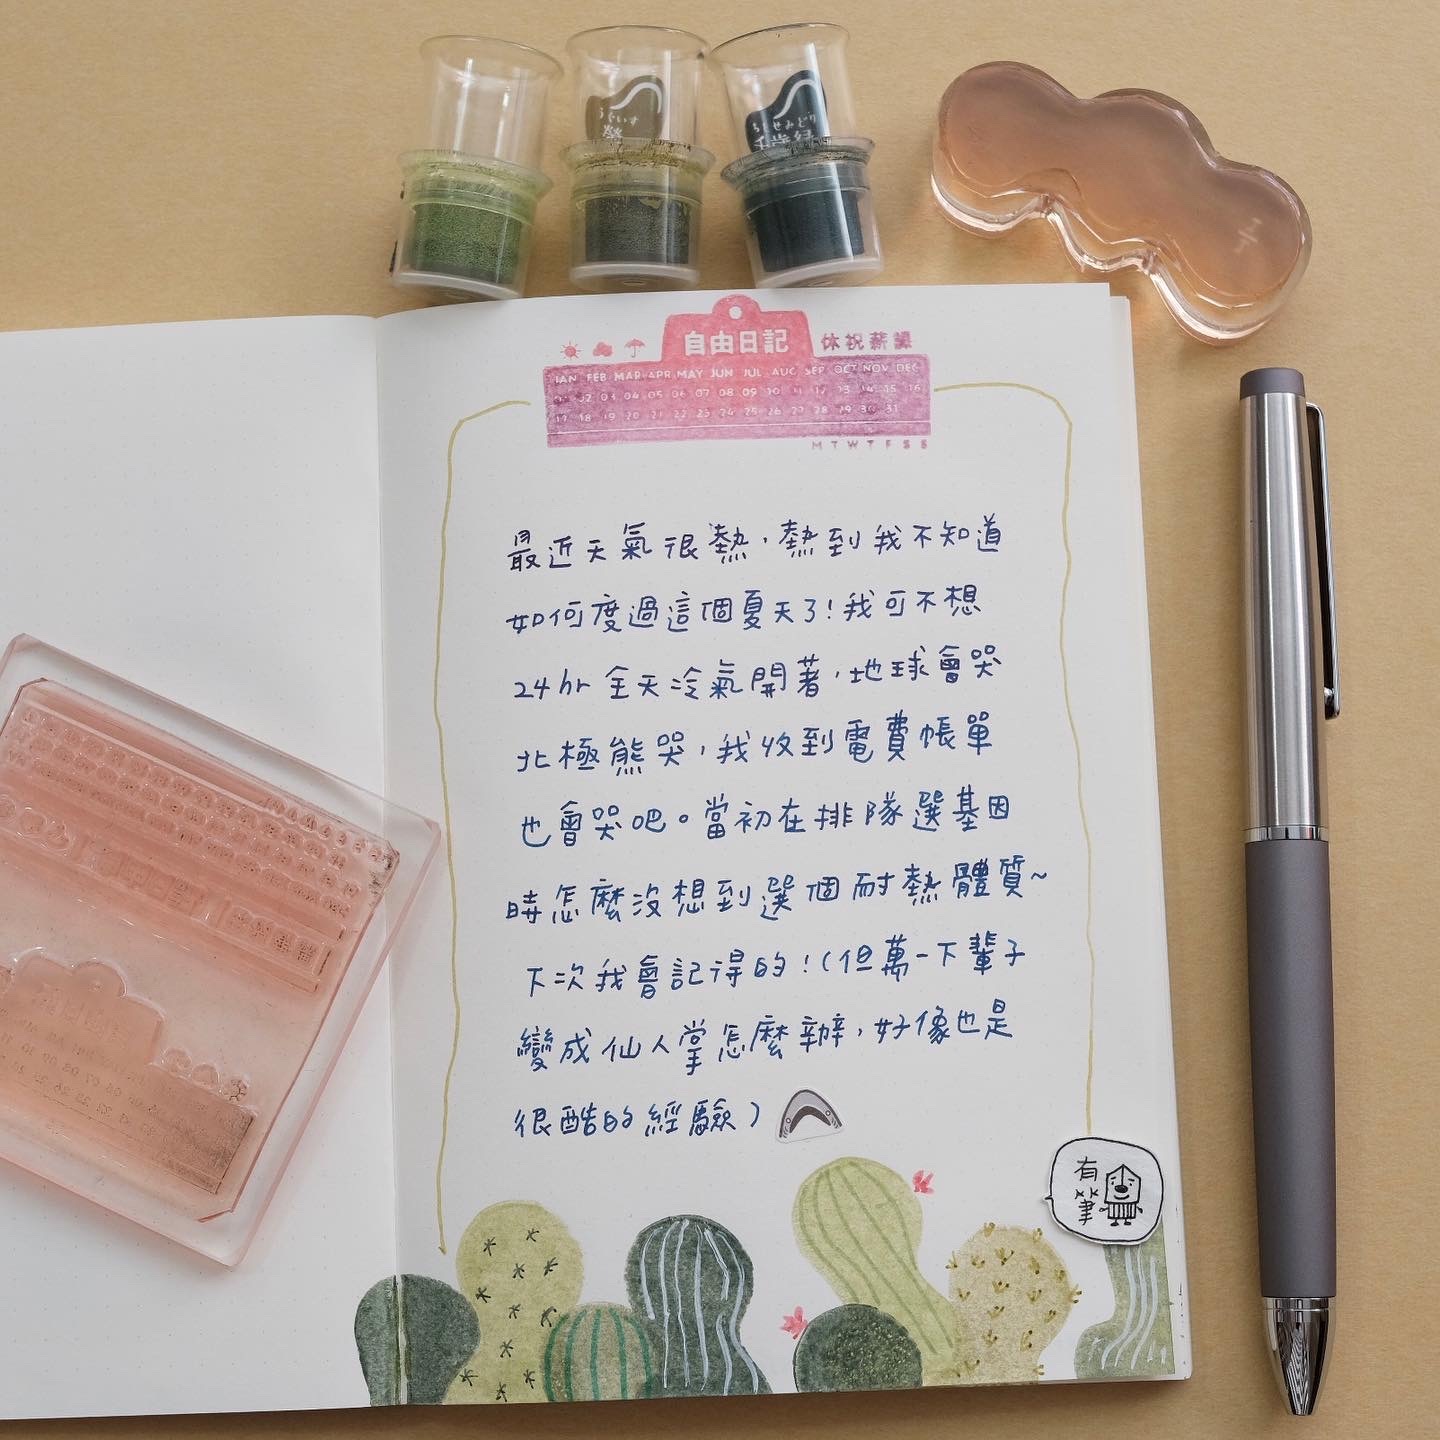 うぐいす
鶯
ちとせみどり
千歳緑
自由日記
休祝薪讓
JAN FEB MAR APR MAY JUN JUL AUG SEP OCT NOV DEC
01 02 03 04 05 06 07 08 09 10 11 12 13 14 15 16
17 18 19 20 21 22 23 24 25 26 27 28 29 30 31
M T W T F S S
最近天氣很熱,熱到我不知道
如何度過這個夏天了!我可不想
24hr全天冷氣開著,地球會哭
北極熊哭,我收到電費帳單
也會哭吧。當初在排隊選基因
時怎麼沒想到選個耐熱體質~
下次我會記得的!(但萬一下輩子
變成仙人掌怎麼辦,好像也是
很酷的經驗)
有
筆